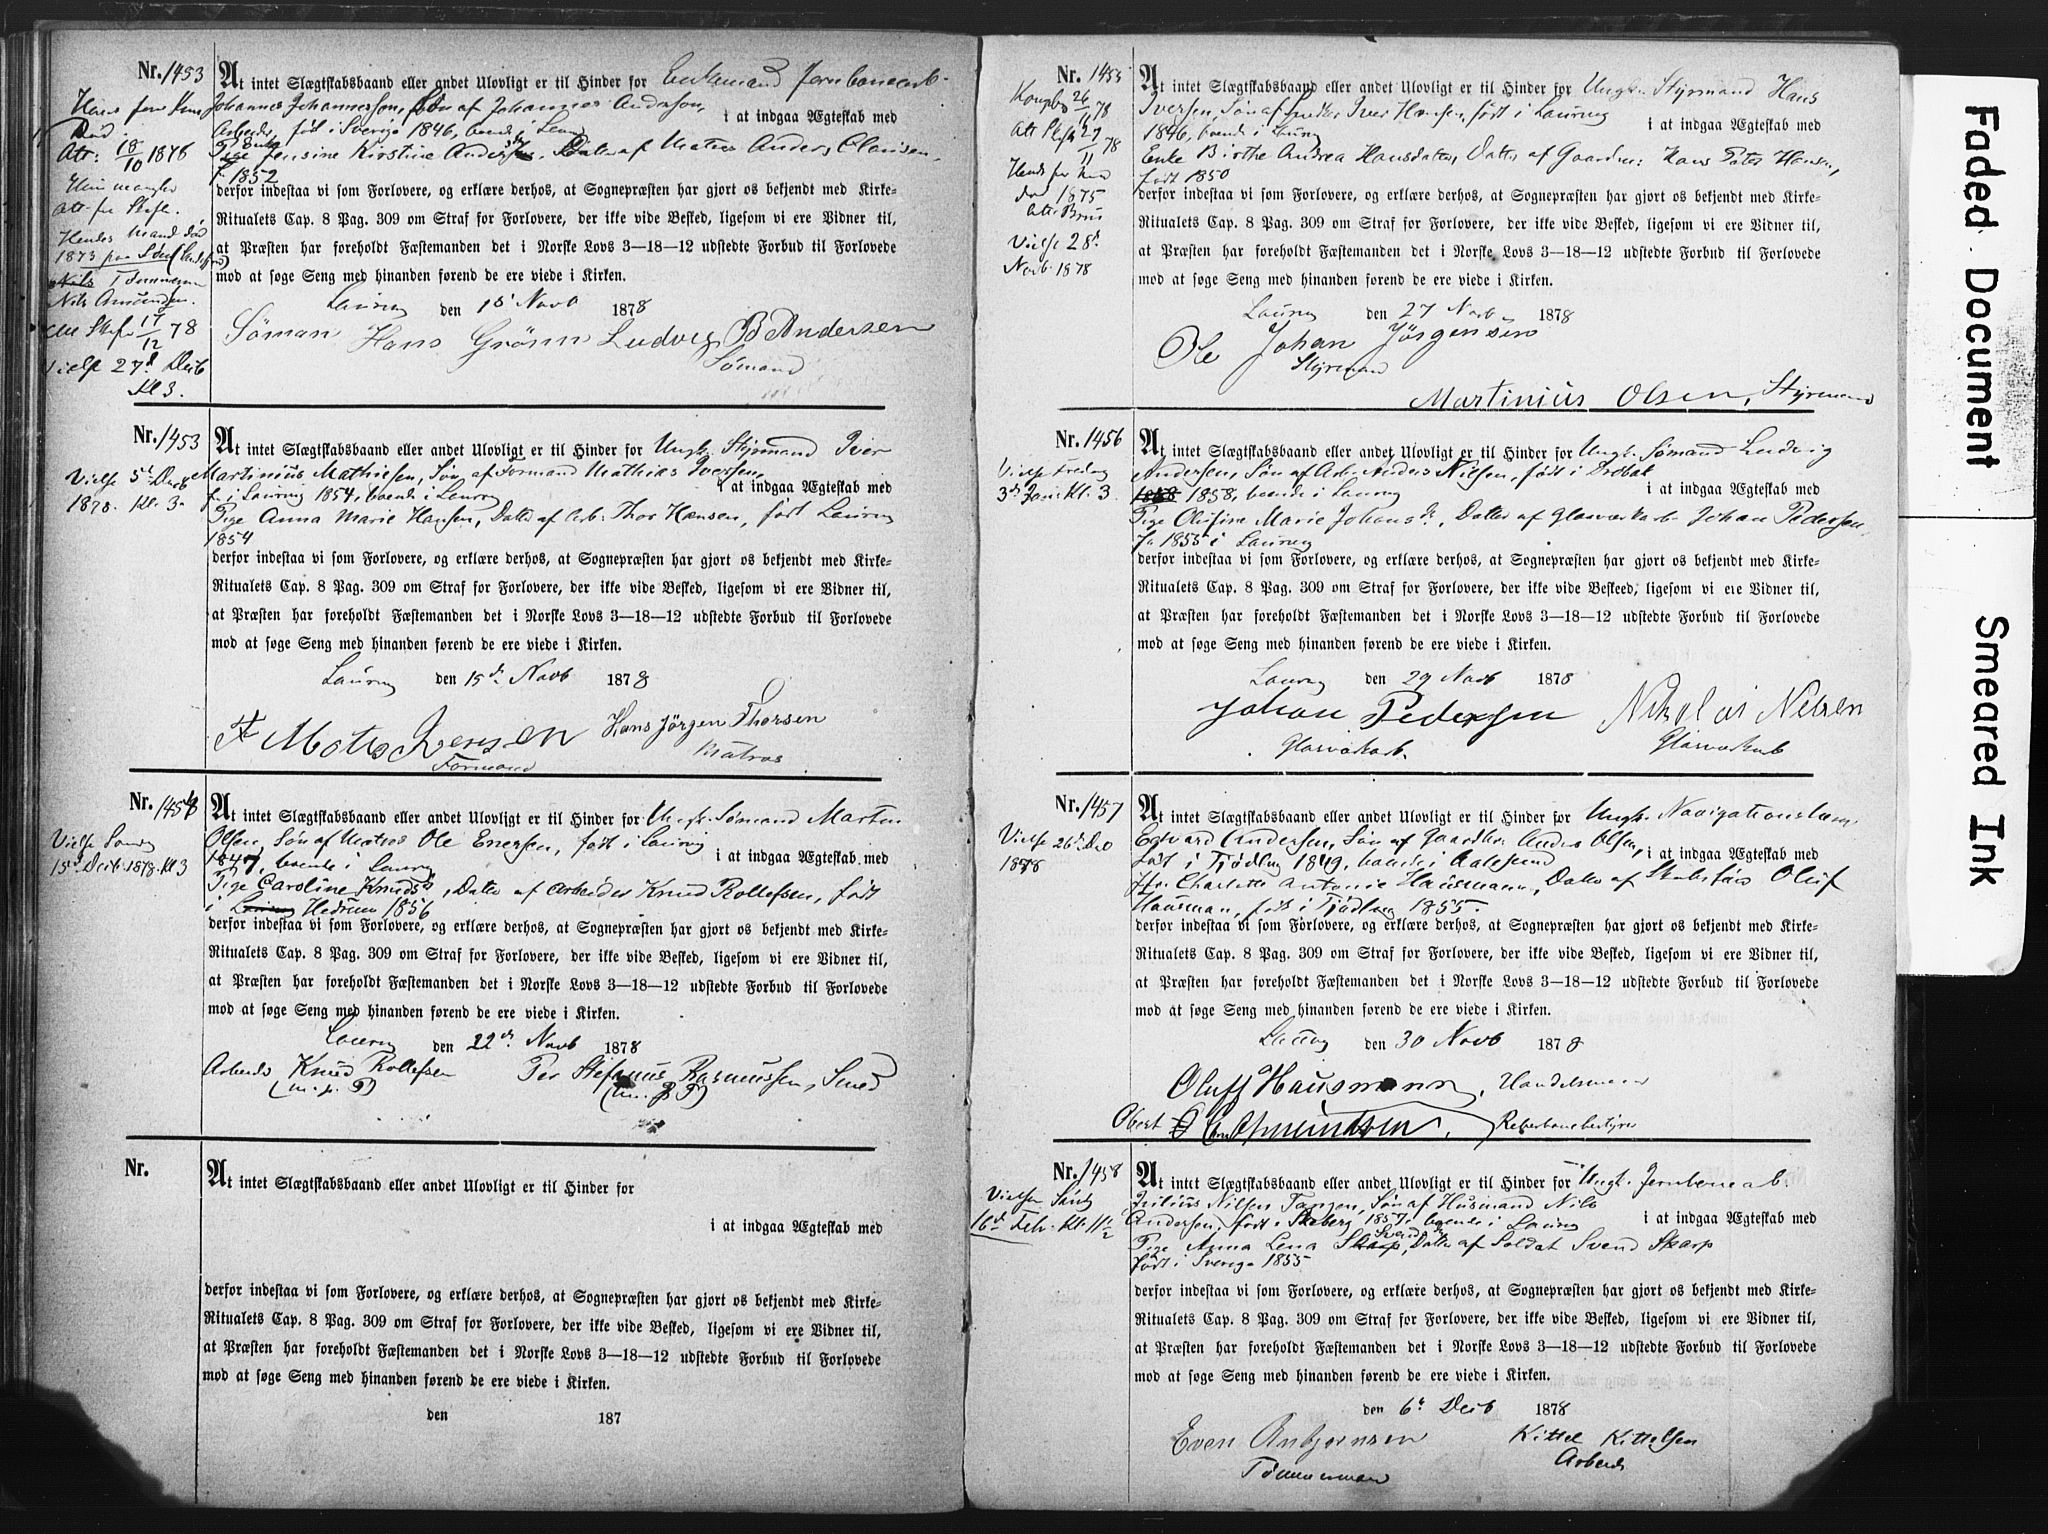 Nr. 1453
At intet Slægtskabsbaand eller andet Ulovligt er til Hinder for Enkemand Jernbanearb.
Johannes Johannessen, Søn af Johannes Anderson,
Arbeider, født i Sverige 1846, boende i Laurvig
i at indgaa Ægteskab med
Pige Jensine Kirstine Anders, Datter af Matros Anders Clausen,
f. 1852
derfor indestaa vi som Forlovere, og erklære derhos, at Sognepræsten har gjort os bekjendt med Kirke-
Ritualets Cap. 8 Pag. 309 om Straf for Forlovere, der ikke vide Besked, ligesom vi ere Vidner til,
at Præsten har foreholdt Fæstemanden det i Norske Lovs 3—18—12 udstedte Forbud til Forlovede
mod at søge Seng med hinanden førend de ere viede i Kirken.
Laurvig den 15 Novb 1878
Söman Hans Grönn Ludvig B Andersen
Sømand
Hans forr. Kone
Død
Att: 18/10 1878
Hun mangler
Att. for Skifte.
Hendes Mand død
1873 paa Søen
Nils Amundsen.
Skifte 17/12 78
Vielse 27d Decb
Kl 3.
Nr. 1453
At intet Slægtskabsbaand eller andet Ulovligt er til Hinder for Ungk. Styrmand Iver
Martinius Mathisen, Søn af Formand Mathias Iversen,
f. i Laurvig 1854, boende i Laurvig
i at indgaa Ægteskab med
Pige Anna Marie Hansen, Datter af Arb. Thor Hansen, født Laurvig
1854
derfor indestaa vi som Forlovere, og erklære derhos, at Sognepræsten har gjort os bekjendt med Kirke-
Ritualets Cap. 8 Pag. 309 om Straf for Forlovere, der ikke vide Besked, ligesom vi ere Vidner til,
at Præsten har foreholdt Fæstemanden det i Norske Lovs 3—18—12 udstedte Forbud til Forlovede
mod at søge Seng med hinanden førend de ere viede i Kirken.
Laurvig den 15d Novb 1878
Iversen
Formand
Hans Jörgen Thorsen
Matros
Vielse 5t Decb
1878. Kl. 3
Nr. 1454
At intet Slægtskabsbaand eller andet Ulovligt er til Hinder for Ungk. Sømand Martin
Olsen, Søn af Matros Ole Enersen, født i Laurvig
1847, boende i Laurvig
i at indgaa Ægteskab med
Pige Caroline Knudsd, Datter af Arbeider Knud Rollefsen, født
i Laurvig Hedrum 1856
derfor indestaa vi som Forlovere, og erklære derhos, at Sognepræsten har gjort os bekjendt med Kirke-
Ritualets Cap. 8 Pag. 309 om Straf for Forlovere, der ikke vide Besked, ligesom vi ere Vidner til,
at Præsten har foreholdt Fæstemanden det i Norske Lovs 3—18—12 udstedte Forbud til Forlovede
mod at søge Seng med hinanden førend de ere viede i Kirken.
Laurvig den 22d Novb 1878
Arbeider Knud Rollefsen Per Stefanus Rasmussen, Smed
(m. p. P) (m. p. P)
Vielse Søndag
15d Decb. 1878. Kl 3
Nr.
At intet Slægtskabsbaand eller andet Ulovligt er til Hinder for
i at indgaa Ægteskab med
derfor indestaa vi som Forlovere, og erklære derhos, at Sognepræsten har gjort os bekjendt med Kirke-
Ritualets Cap. 8 Pag. 309 om Straf for Forlovere, der ikke vide Besked, ligesom vi ere Vidner til,
at Præsten har foreholdt Fæstemanden det i Norske Lovs 3—18—12 udstedte Forbud til Forlovede
mod at søge Seng med hinanden førend de ere viede i Kirken.
den 187
Nr. 1455
At intet Slægtskabsbaand eller andet Ulovligt er til Hinder for Ungk. Styrmand Hans
Iversen, Søn af Snedker Iver Hansen, født i Laurvig
1846, boende i Laurvig
i at indgaa Ægteskab med
Enke Birthe Andrea Hansdatter, Datter af Gaardbr. Hans Peter Hansen,
født 1850
derfor indestaa vi som Forlovere, og erklære derhos, at Sognepræsten har gjort os bekjendt med Kirke-
Ritualets Cap. 8 Pag. 309 om Straf for Forlovere, der ikke vide Besked, ligesom vi ere Vidner til,
at Præsten har foreholdt Fæstemanden det i Norske Lovs 3—18—12 udstedte Forbud til Forlovede
mod at søge Seng med hinanden førend de ere viede i Kirken.
Laurvig den 27 Novb 1878
Ole Johan Jörgensen
Styrmand
Martinius Olsen, Styrmand
Att Skifte 27/11 78
Hendes for. Mand
død 1875
Vielse 28d
Novb. 1878
Nr. 1456
At intet Slægtskabsbaand eller andet Ulovligt er til Hinder for Ungk. Sømand Ludvig
Andersen, Søn af Arb. Anders Nilsen, født i Drøbak
1858, boende i Laurvig
i at indgaa Ægteskab med
Pige Olufine Marie Johansd., Datter af Glasværkarb. Johan Pedersen,
f. 1855 i Laurvig
derfor indestaa vi som Forlovere, og erklære derhos, at Sognepræsten har gjort os bekjendt med Kirke-
Ritualets Cap. 8 Pag. 309 om Straf for Forlovere, der ikke vide Beskeed, ligesom vi ere Vidner til,
at Præsten har foreholdt Fæstemanden det i Norske Lovs 3—18—12 udstedte Forbud til Forlovede
mod at søge Seng med hinanden førend de ere viede i Kirken.
Laurvig den 29 Novb 1878
Johan Pedersen Nikolai Nelsen
Glasværkarb. Glasværkarb
Vielse Fredag
3d Jan. Kl. 3.
Nr. 1457
At intet Slægtskabsbaand eller andet Ulovligt er til Hinder for Ungk. Navigationslærer
Edvard Andersen, Søn af Gaardbr. Anders Olsen,
født i Tjødling 1849, boende i Aalesund
i at indgaa Ægteskab med
Jfr. Charlotte Antonie Hausmann, Datter af Skibsfører Oluf
Hausman, født i Tjødling 1855.
derfor indestaa vi som Forlovere, og erklære derhos, at Sognepræsten har gjort os bekjendt med Kirke-
Ritualets Cap. 8 Pag. 309 om Straf for Forlovere, der ikke vide Besked, ligesom vi ere Vidner til,
at Præsten har foreholdt Fæstemanden det i Norske Lovs 3—18—12 udstedte Forbud til Forlovede
mod at søge Seng med hinanden førend de ere viede i Kirken.
Laurvig den 30 Novb 1878
Oluff Hausmann, Handelsmann
Reberbanebestyrer
Vielse 26d Dec
1878
Nr. 1458
At intet Slægtskabsbaand eller andet Ulovligt er til Hinder for Ungk. Jernbanearb.
Julius Nilsen Tangen, Søn af Husmand Nils
Andersen, født i Skoberg 1857, boende i Laurvig
i at indgaa Ægteskab med
Pige Anna Lena Skarp, Datter af Soldat Svend Skarp
født i Sverige 1855
derfor indestaa vi som Forlovere, og erklære derhos, at Sognepræsten har gjort os bekjendt med Kirke-
Ritualets Cap. 8 Pag. 309 om Straf for Forlovere, der ikke vide Besked, ligesom vi ere Vidner til,
at Præsten har foreholdt Fæstemanden det i Norske Lovs 3—18—12 udstedte Forbud til Forlovede
mod at søge Seng med hinanden førend de ere viede i Kirken.
den 6t Decb 1878
Even Anbjørnsen Kittel Kittelsen
Tømmermand Arbeider
Vielsen Søndag
16d Feb. Kl. 11½
Faded Document
Smeared Ink